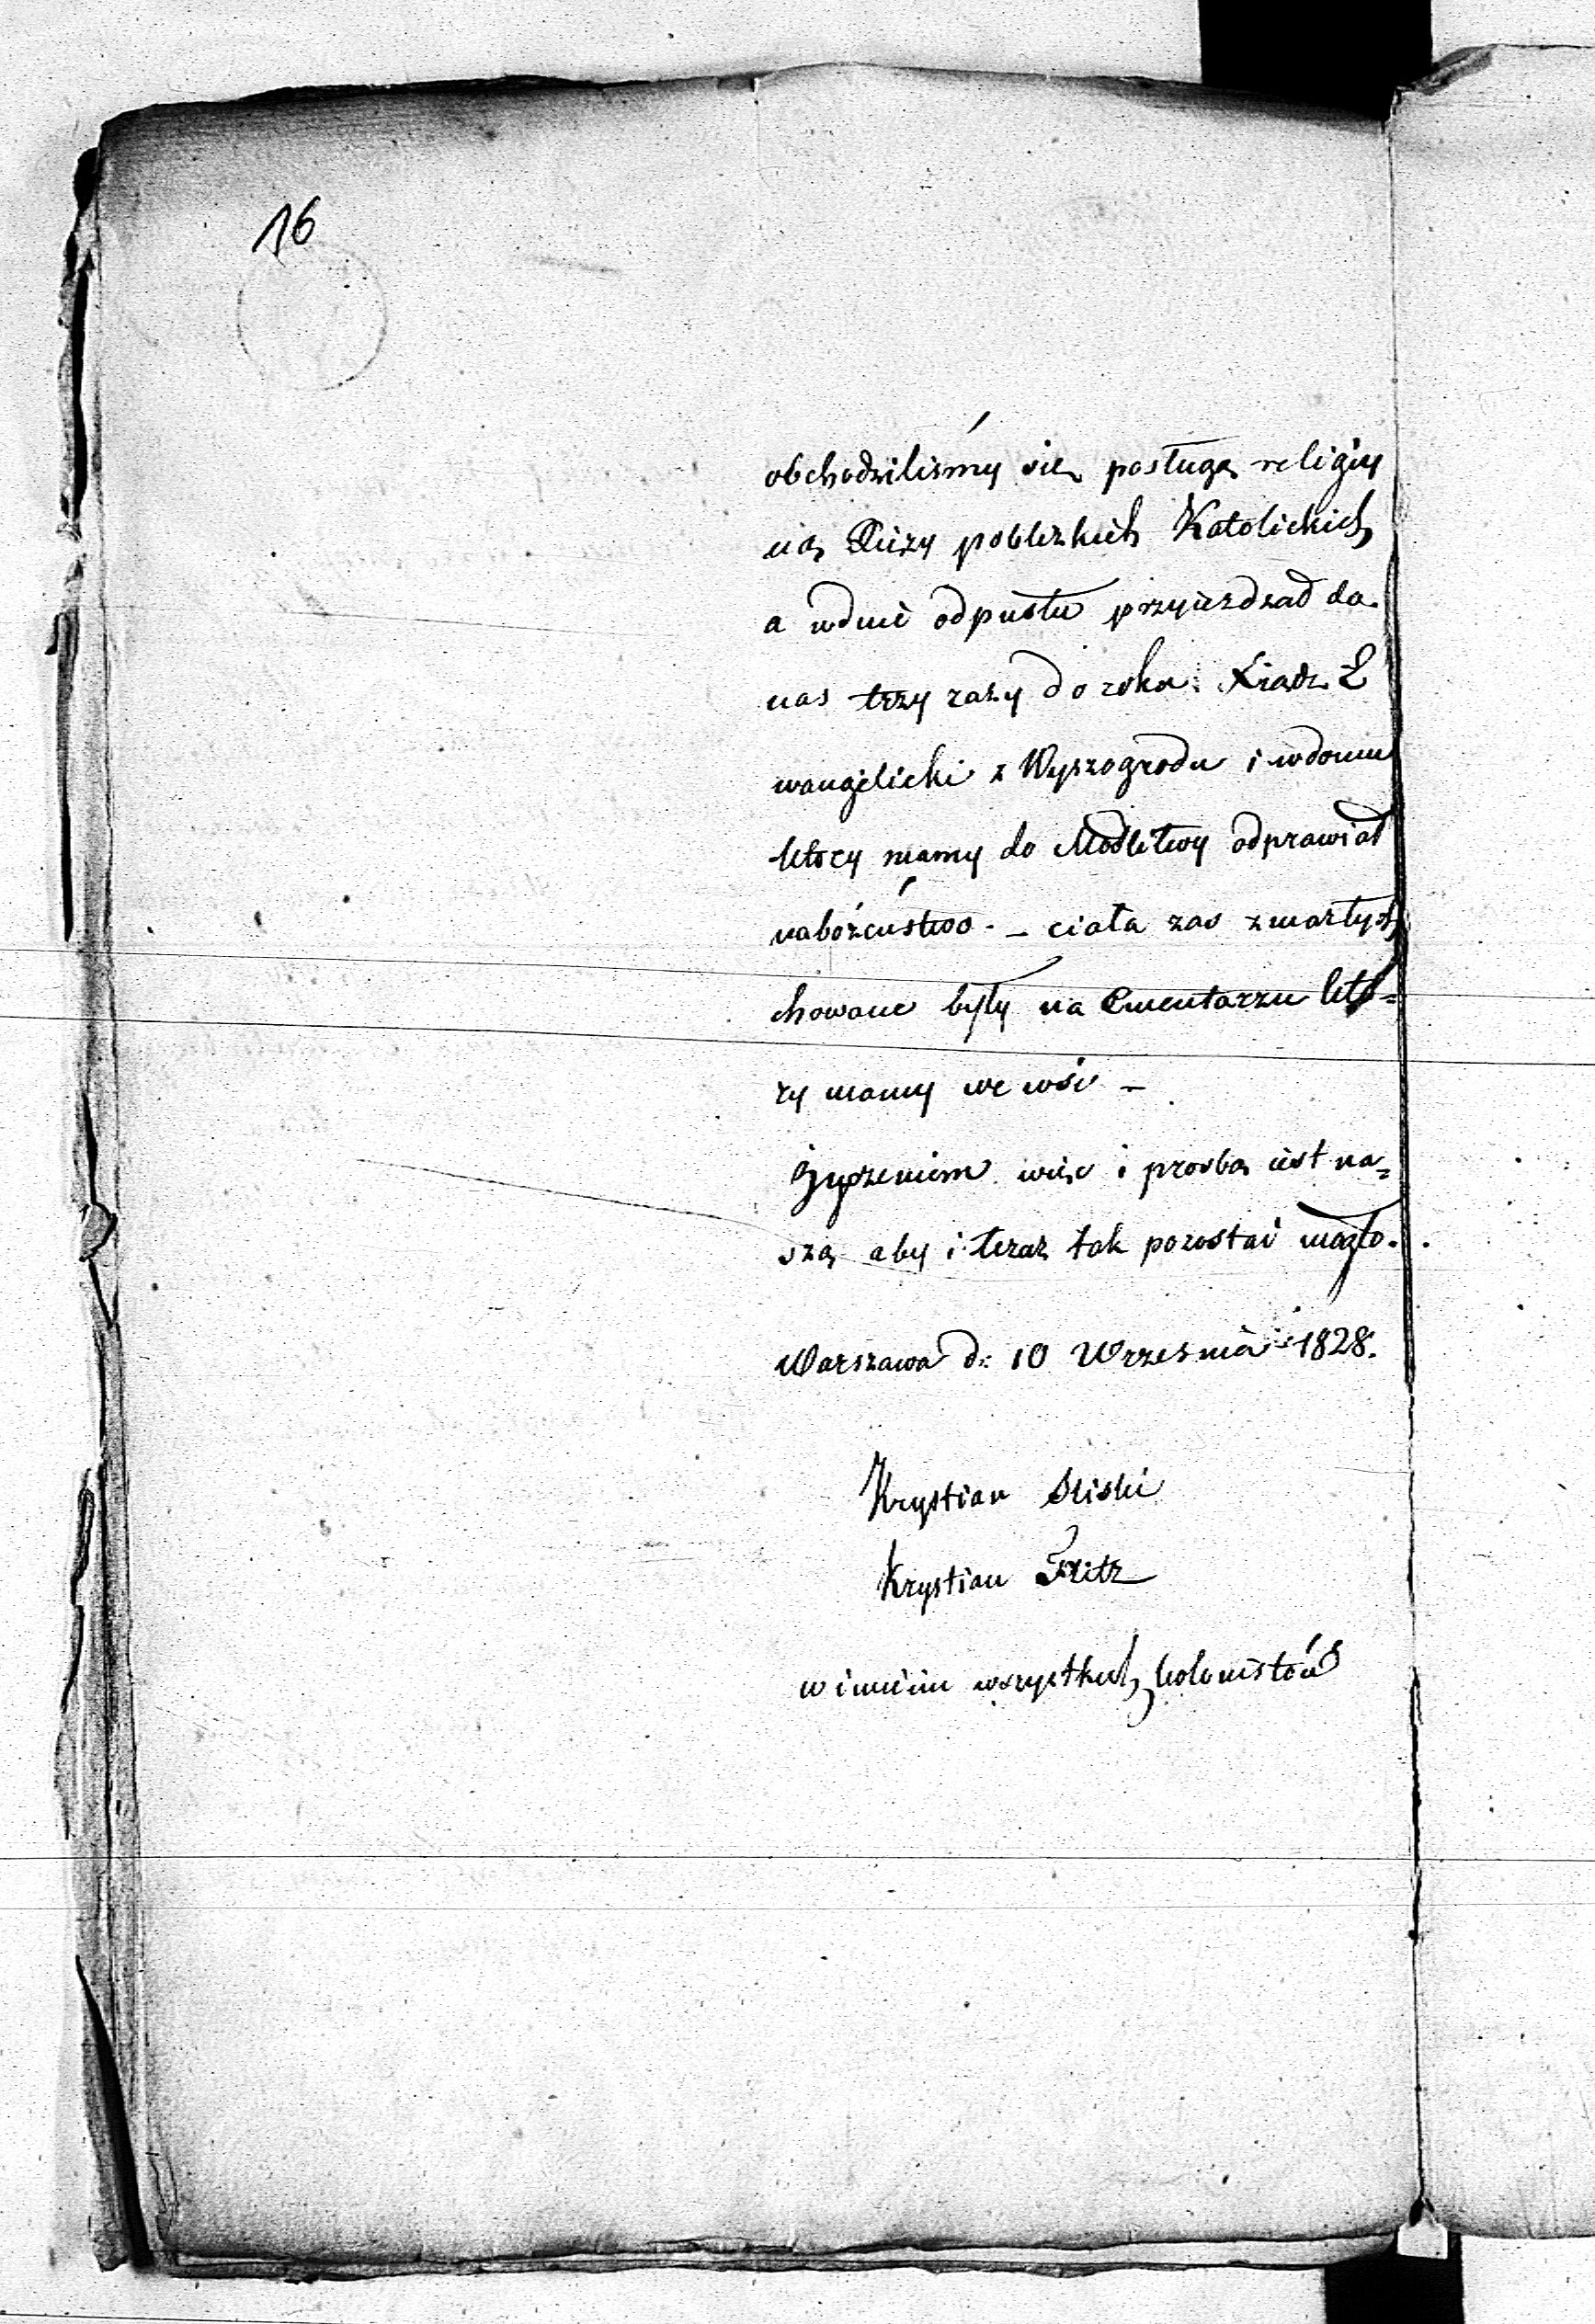 16
obchodziliśmy się posługą religiy
ną Xięży poblizkich Katolickich
a wdnie odpustu przyiezdzad do
nas trzy razy do roku Xiadz E
wangelicki z Wyszogrodu i wdomu
ktory mamy do Modlitwy odprawiad
nabożeństwo. – ciała zas zmarłych
chowane były na Cmentarzu któ=
ry mamy we wsi –
Zyczeniem więc i prosbą iest na=
szą aby i teraz tak pozostać mogło.
Warszawa d: 10 Wrzesnia 1828.
Krystian
Krystian Fritz
w imieniu wszystkich kolonistów